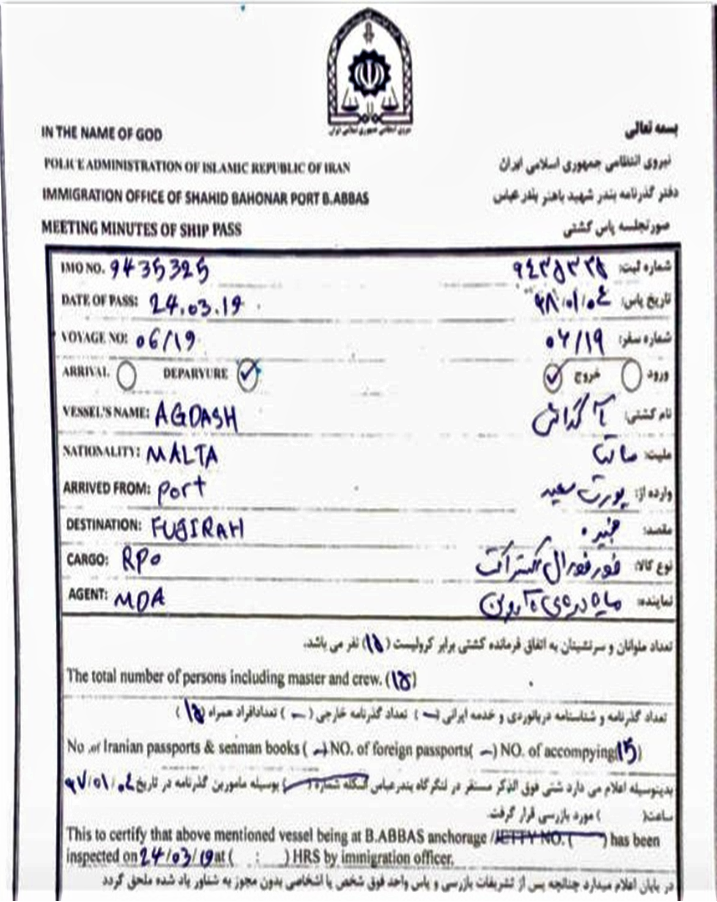 IN THE NAME OF GOD
بسمه تعالی
POLICE ADMINISTRATION OF ISLAMIC REPUBLIC OF IRAN
نیروی انتظامی جمهوری اسلامی ایران
IMMIGRATION OFFICE OF SHAHID BAHONAR PORT B.ABBAS
دفتر گذرنامه بندر شهید باهنر بندرعباس
MEETING MINUTES OF SHIP PASS
صورتجلسه پاس کشتی
IMO NO. 9435325
شماره ثبت: ۹۴۳۵۳۲۵
DATE OF PASS: 24.03.19
تاریخ پاس: ۹۸/۰۱/۰۴
VOYAGE NO: 06/19
شماره سفر: ۰۶/۱۹
ARRIVAL DEPARVURE
ورود خروج
VESSEL'S NAME: AGDASH
نام کشتی:
NATIONALITY: MALTA
ملیت: مالت
ARRIVED FROM: port
وارده از: پورت سعید
DESTINATION: FUJIRAH
مقصد: فجیره
CARGO: RPO
نوع کالا:
AGENT: MDA
نماینده:
تعداد ملوانان و سرنشینان به اتفاق فرمانده کشتی برابر کرولیست (۱۵) نفر می باشد.
The total number of persons including master and crew. (15)
تعداد گذرنامه و شناسنامه دریانوردی و خدمه ایرانی (—) تعداد گذرنامه خارجی (—) تعدادافراد همراه (۱۵)
No .of Iranian passports & seaman books ( —) NO. of foreign passports( —) NO. of accompying(15)
بدینوسیله اعلام می دارد شتی فوق الذکر مستقر در لنگرگاه بندرعباس اسکله شماره ( ) بوسیله مامورین گذرنامه در تاریخ ۹۷/۰۱/۰۴
ساعت( ) مورد بازرسی قرار گرفت.
This to certify that above mentioned vessel being at B.ABBAS anchorage /JETTY NO. ( ) has been
inspected on 24/03/19 at ( : ) HRS by immigration officer.
در پایان اعلام میدارد چنانچه پس از تشریفات بازرسی و پاس واحد فوق شخص یا اشخاصی بدون مجوز به شناور یاد شده ملحق گردد